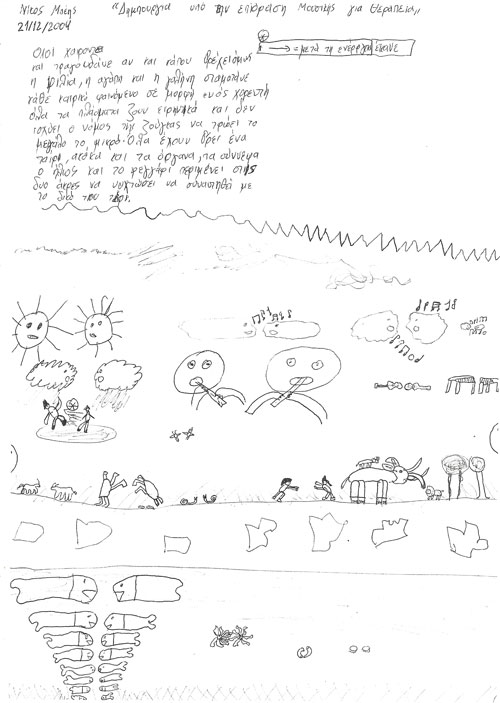 Νίκος Μπάκης "Δημιουργία υπό την επίδραση Μουσικής για Θεραπεία"
21/12/2004
= μετά τη ενέργεια έπαινε
Όλοι χορεύουν
και τραγουδάνε αν και κάπου βρέχει όμως
η φιλία, η αγάπη και η γαλήνη σταματάνε
κάθε καιρικό φαινόμενο σε μορφή ενός χορευτή
όλα τα πλάσματα ζουν ειρηνικά και δεν
ισχύει ο νόμος της ζούγκλας να τρώει το
μεγάλο το μικρό. Όλα έχουν βρει ένα
ταίρι, ακόμα και τα όργανα, τα σύννεφα
ο ήλιος και το φεγγάρι περιμένει στις
δυο άκρες να νυχτώσει να συναντηθεί με
το δικό του ταίρι.